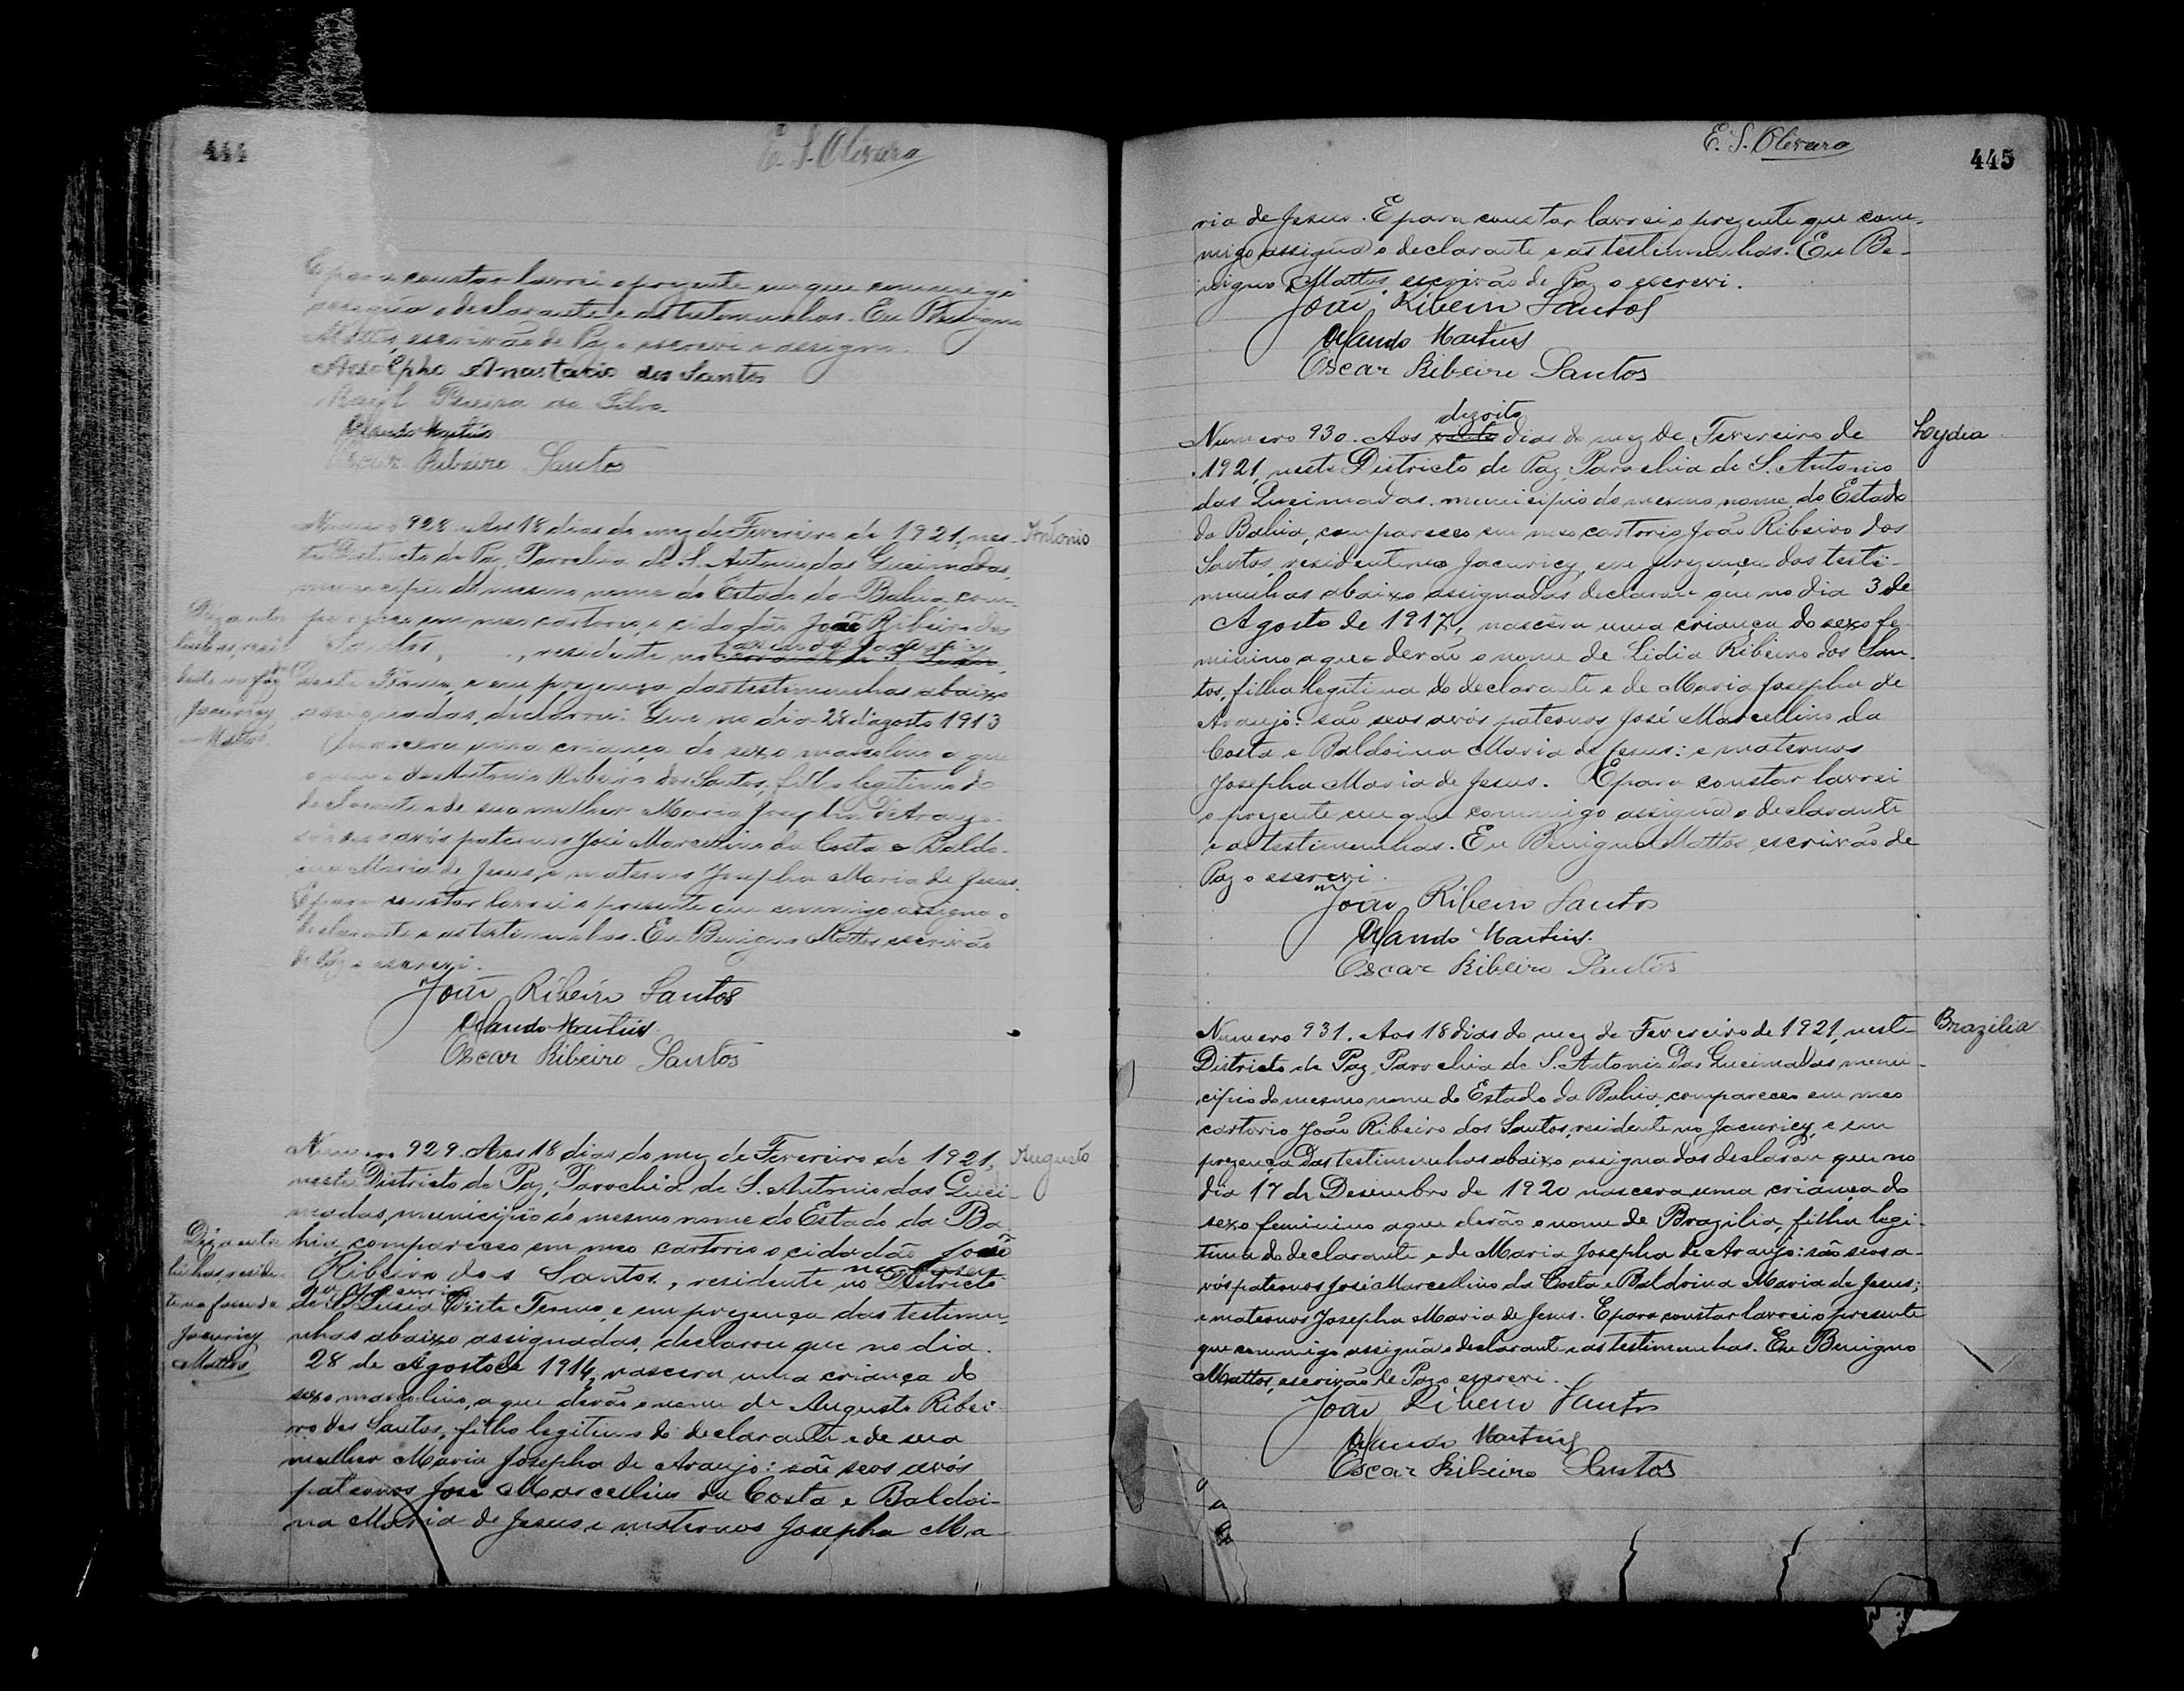 444
E. S. Olivara
E para constar lavrei o prezente em que commigo
assigna o declarante e as testemunhas. Eu Benigno
Mattos, escrivão de Paz o escrevi e assigno.
Adolpho Anastacio dos Santos
Pereira da Silva
Orlando Martins
Oscar Ribeiro Santos
Numero 928. Aos 18 dias do mez de Fevereiro de 1921, nes-
Antonio
te Districto de Paz, Parochia de S. Antonio das Queimadas,
municipio do mesmo nome do Estado da Bahia, com-
pareceo em meo cartorio, o cidadão João Ribeiro dos
Santos, , residente na
deste Termo, e em prezença das testemunhas abaixo
assignadas, declarou: Que no dia 28 d'agosto 1913
nascera uma criança do sexo masculino a que
o nome de Antonio Ribeiro dos Santos, filho legitimo do
declarante e de sua mulher Maria Josepha d'Araujo
são seos avós paternos José Marcellino da Costa e Baldo-
ina Maria de Jesus, e maternos Josepha Maria de Jesus.
E para constar lavrei o presente em que commigo assigna o
declarante e as testemunhas. Eu Benigno Mattos escrivão
de Paz o escrevi.
Diz a entre
linhas, resi-
dente na faz
Jacuricy
Mattos
João Ribeiro Santos
Orlando Martins
Oscar Ribeiro Santos
Numero 929. Aos 18 dias do mez de Fevereiro de 1921,
Augusto
neste Districto de Paz, Parochia de S. Antonio das Quei-
madas, municipio do mesmo nome do Estado da Ba-
hia, compareceo em meo cartorio o cidadão João
Ribeiro dos Santos, residente no Districto
de S. Luzia deste Termo, e em prezença das testimu-
nhas abaixo assignadas, declarou que no dia
28 de Agosto de 1914, nascera uma criança do
sexo masculino, a que derão o nome de Augusto Ribei-
ro dos Santos, filho legitimo do declarante e de sua
mulher Maria Josepha de Araujo: são seos avós
paternos José Marcellino da Costa e Baldoi-
na Maria de Jesus e maternos Josepha Ma-
Diz a entre
linhas, reside-
te na fazenda
Jacuricy
Mattos
E. S. Olivara
445
ria de Jesus. E para constar lavrei o prezente que com-
migo assigna o declarante e as testimunhas. Eu Be-
nigno Mattos, escrivão de Paz o escrevi.
João Ribeiro Santos
Orlando Martins
Oscar Ribeiro Santos
dezoito
Numero 930. Aos dias do mez de Fevereiro de
Lydia
1921, neste Districto de Paz, Parochia de S. Antonio
das Queimadas, municipio do mesmo nome, do Estado
da Bahia, compareceo em meo cartorio João Ribeiro dos
Santos, residente no Jacuricy, em prezença das testi-
munhas abaixo assignadas declarou que no dia 3 de
Agosto de 1917, nascera uma criança do sexo fe-
minino a que derão o nome de Lidia Ribeiro dos San-
tos, filha legitima do declarante e de Maria Josepha de
Araujo: são seos avós paternos José Marcellino da
Costa e Baldoina Maria de Jesus: e maternos
Josepha Maria de Jesus. E para constar lavrei
o prezente em que commigo assigna o declarante
e as testimunhas. Eu Benigno Mattos, escrivão de
Paz o escrevi.
João Ribeiro Santos
Orlando Martins.
Oscar Ribeiro Santos
Numero 931. Aos 18 dias do mez de Fevereiro de 1921, neste
Brazilia
Districto de Paz, Parochia de S. Antonio das Queimadas muni-
cipio do mesmo nome do Estado da Bahia, compareceo em meo
cartorio João Ribeiro dos Santos, residente no Jacuricy, e em
prezença das testimunhas abaixo assignadas declarou que no
dia 17 de Desembro de 1920 nascera uma criança do
sexo feminino a que derão o nome de Brazilia, filha legi-
tima do declarante e de Maria Josepha de Araujo: são seos a-
vós paternos José Marcellino da Costa e Baldoina Maria de Jesus;
e maternos Josepha Maria de Jesus. E para constar lavrei o presente
que commigo assigna o declarante e as testimunhas. Eu Benigno
Mattos, escrivão de Paz o escrevi.
João Ribeiro Santos
Orlando Martins
Oscar Ribeiro Santos